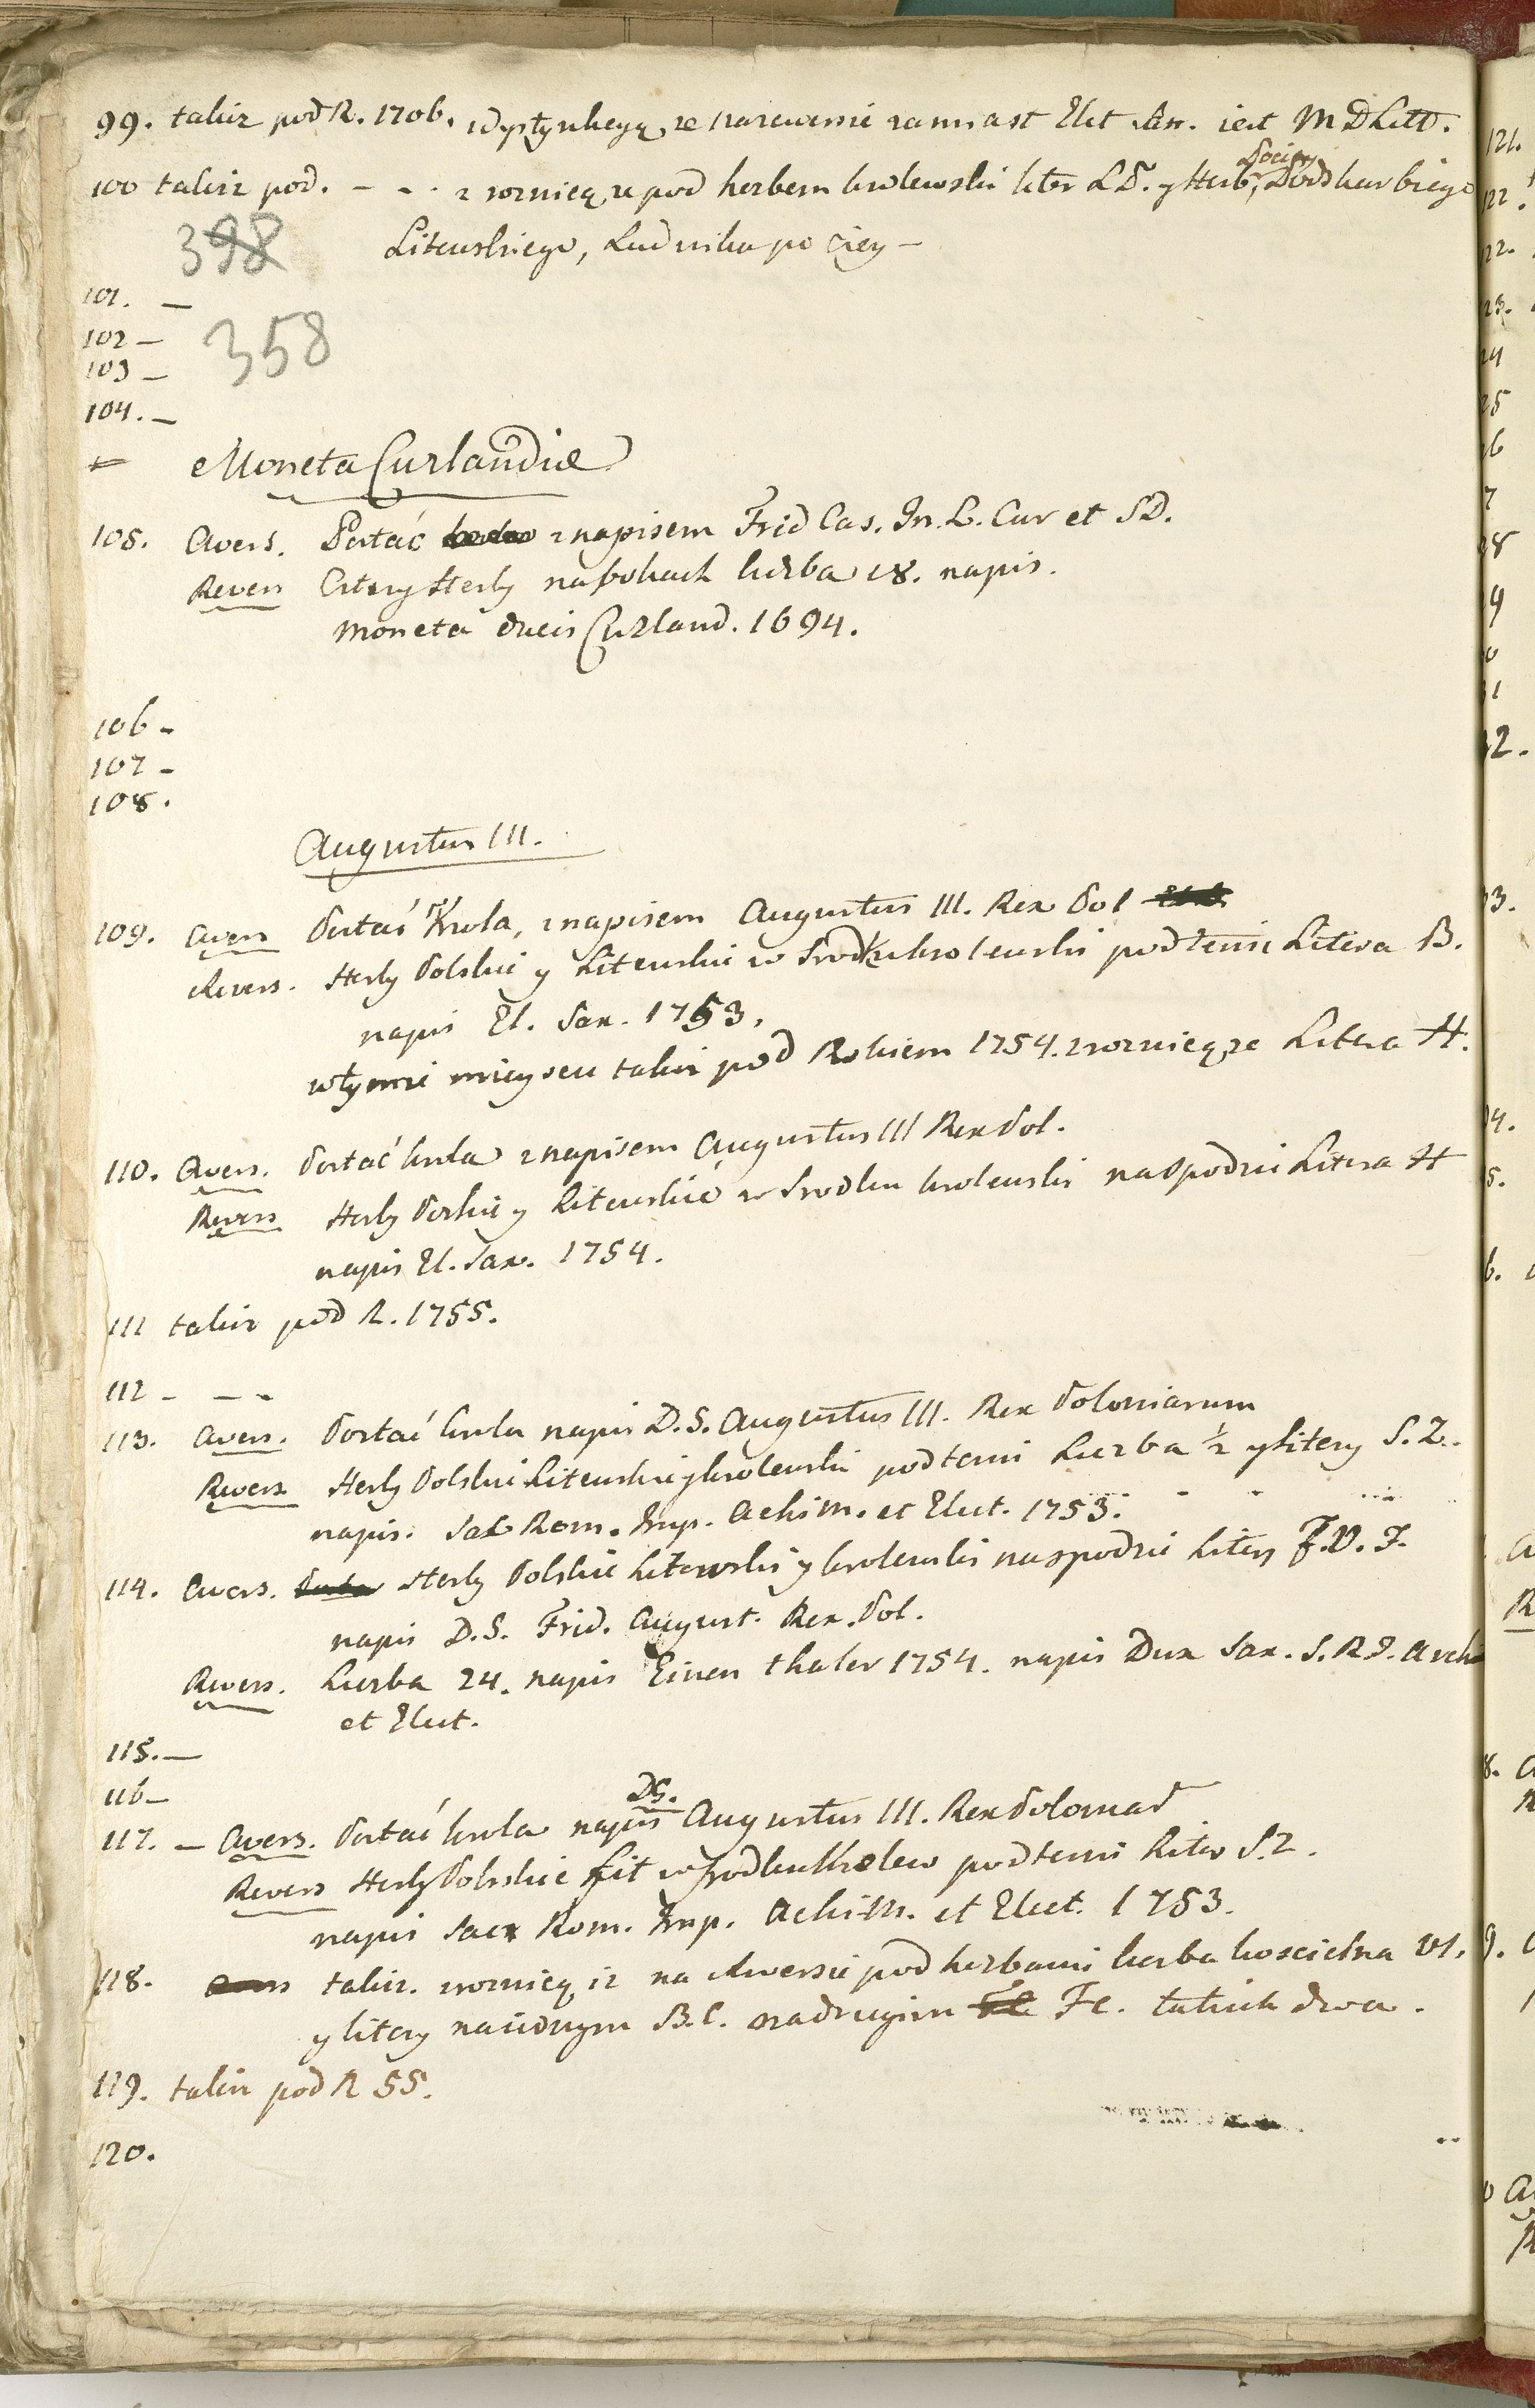 99. takiż pod R. 1706. z dystynkcyą, że na rewersie zamiast Elet. Sax. iest M D Litt.
100 takiż pod. - - - z rożnicą że pod herbem krolewski liter L P. y Herb Pociey Podskarbiego
398
Litewskiego, Ludwika Pociey -
101. -
102 -
358
103 -
104. -
Moneta Curlandiæ
105. Avers. Postać z napisem Frid Cas. In. L. Cur et SD.
Revers Cztery Herby na bokach liczba 18. napis.
Moneta ducis Curland. 1694.
106 -
107 -
108.
Augustus III.
109. Avers Postać Krola, z napisem Augustus III. Rex Pol
Revers. Herby Polskie y Litewskie w srodku krolewski pod temi Litera B.
napis El. Sax. 1753.
w tymże mieyscu takiż pod Rokiem 1754. z rożnicą że Litera H.
110. Avers. Postać krola z napisem Augustus III Rex Pol.
Revers Herby Polskie y Litewskie w srodku krolewski na spodzie Litera H
napis El. Sax. 1754.
111 takiż pod R. 1755.
112 - - -
113. Avers. Postać krola napis D.G. Augustus III. Rex Poloniarum
Revers Herby Polskie Litewskie y krolewski pod temi Liczba ½ y litery S. Z.
napis. Sac Rom. Imp. Achi M. et Elect. 1753.
114. Avers. Herby Polskie Litewski y krolewski na spodzie Litery F.V.F.
napis D.G. Frid. August. Rex. Pol.
Revers. Liczba 24. napis Einen thaler 1754. napis Dux Sax. S.R.I. Archi
et Elect.
115. -
116 -
117. - Avers. Postać krola napis DG. Augustus III. Rex Poloniar
Revers Herby Polskie Lit w srodku Krolew pod temi Liter S.Z.
napis Sacr Rom. Imp. Achi M. et Elect. 1753.
118. takiż. z rożnicą iż na Rewersie pod herbami liczba koscielna VI.
y litery na iednym B.C. na drugim FC. takich dwa.
119. takiż pod R 55.
120.